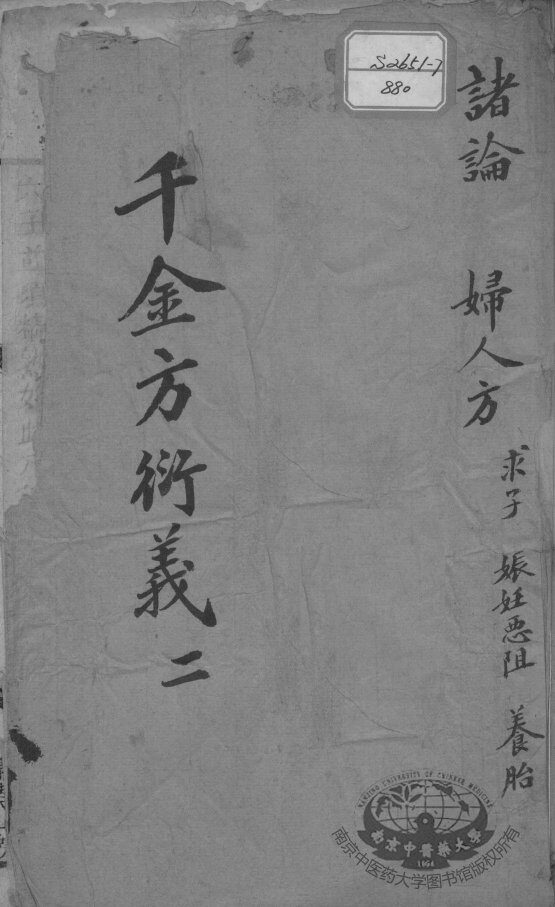 S2651-7
880
諸論 婦人方 求子 娠妊惡阻 養胎
千金方衍義 二
NANJING UNIVERSITY OF CHINESE MEDICINE
南京中醫藥大學
1954
南京中医药大学图书馆版权所有